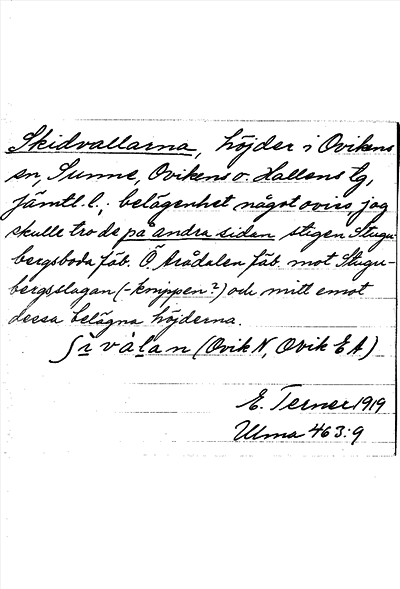 Skidvallarna, höjder i Ovikens
sn, Sunne, Ovikens o. Hallens tg,
Jämtl. l.; belägenhet något oviss, jag
skulle tro de på andra sidan stigen Stugu-
bergsboda fäb. Ö. Arådalen fäb. mot Stugu-
bergsslagan (-knippen?) och mitt emot
dessa belägna höjderna.
(Ovik N, Ovik E A)
E. Terner 1919
Ulma 463:9